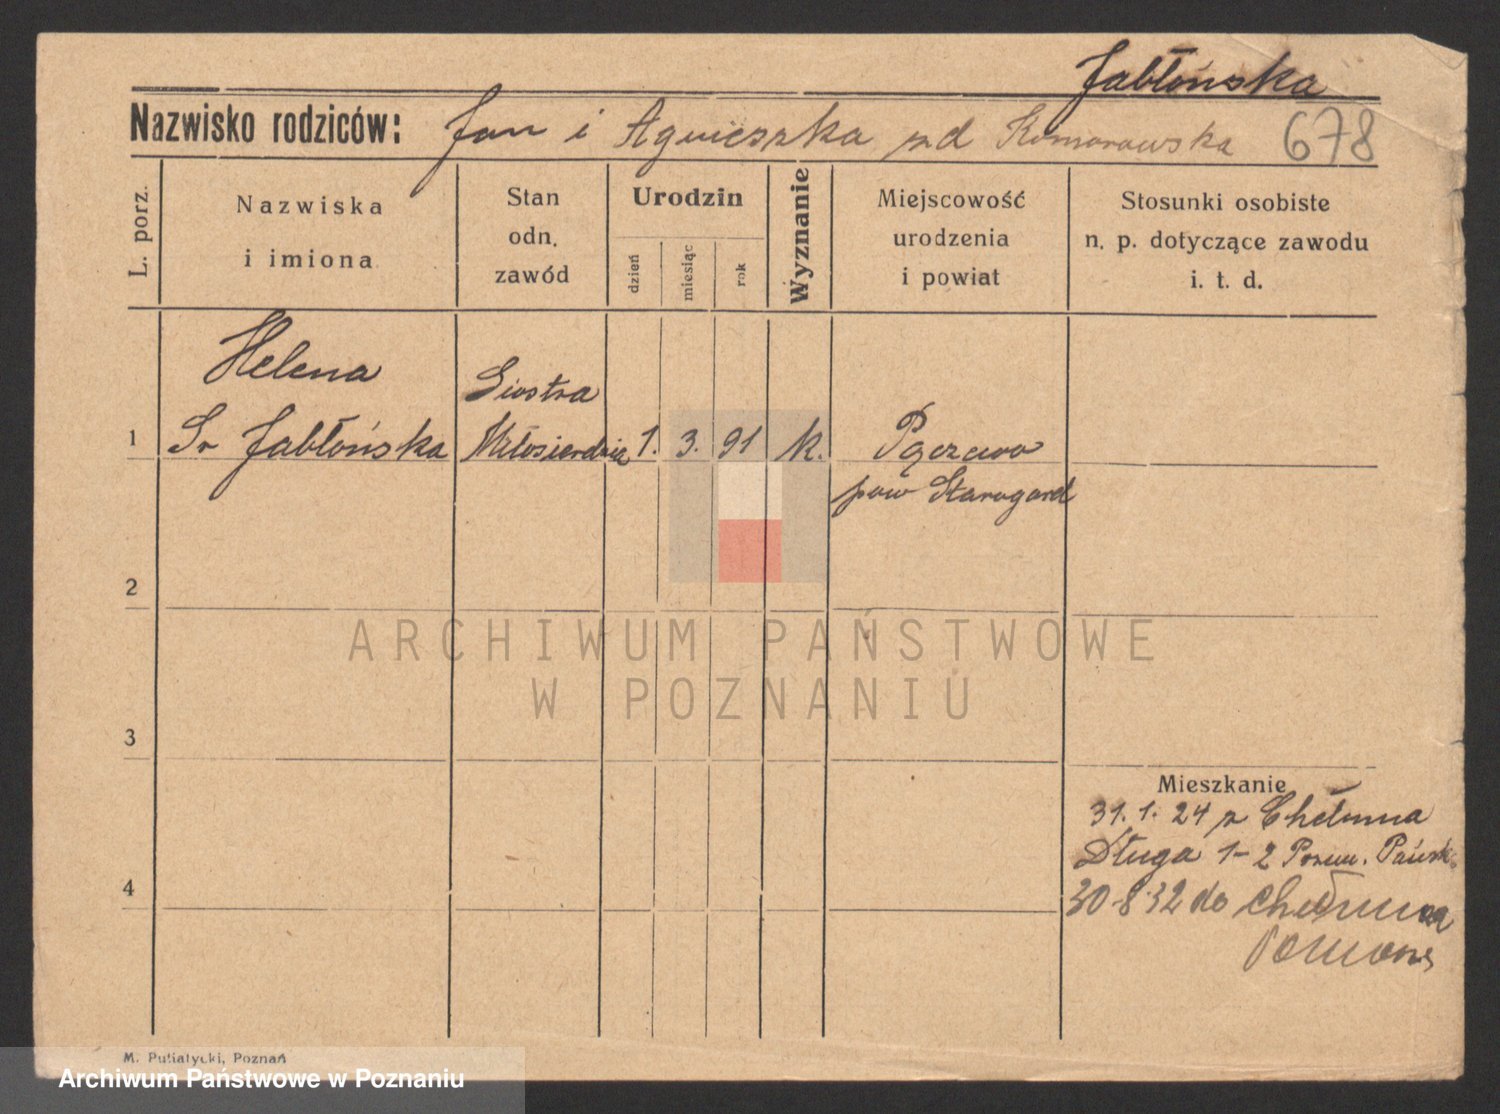 Jabłońska
Nazwisko rodziców: Jan i Agnieszka zd Komorowska 678
L. porz.
Nazwiska
i imiona
Stan
odn.
zawód
Urodzin
dzień
miesiąc
rok
Wyznanie
Miejscowość
urodzenia
i powiat
Stosunki osobiste
n. p. dotyczące zawodu
i. t. d.
Helena
Siostra
1 Sr Jabłońska Miłosierdzia 1. 3. 91 k.
pow Starogard
2
ARCHIWUM PAŃSTWOWE
W POZNANIU
3
Mieszkanie
31. 1. 24 z Chełmna
Długa 1-2
4
30-8-32 do Chełmna
M. Putiatycki, Poznań
Archiwum Państwowe w Poznaniu